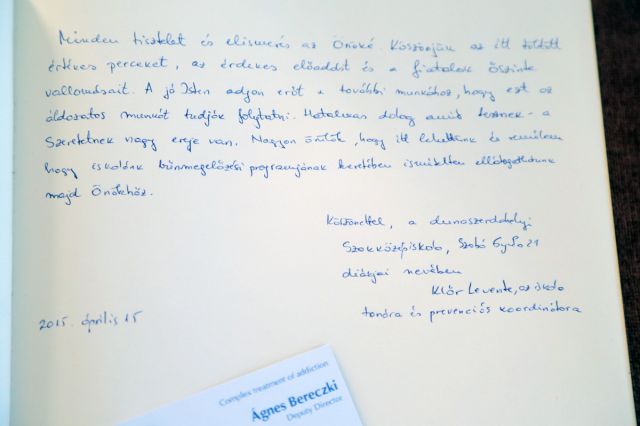 Minden tisztelet és elismerés az Önöké. Köszönjük az itt töltött
értékes perceket, az érdekes előadást és a fiatalok őszinte
vallomásait. A jó Isten adjon erőt a további munkához, hogy ezt az
áldozatos munkát tudják folytatni. Hatalmas dolog amit tesznek - a
Szeretetnek nagy ereje van. Nagyon örülök, hogy itt lehettünk és remélem
hogy iskolánk bűnmegelőzési programjának keretében ismételten ellátogathatunk
majd Önökhöz.
Köszönettel, a dunaszerdahelyi
Szakközépiskola, Szabó Gyula 21
diákjai nevében
Klór Levente, az iskola
tanára és prevenciós koordinátora
2015. április 15
Complex treatment of addiction
Ágnes Bereczki
Deputy Director